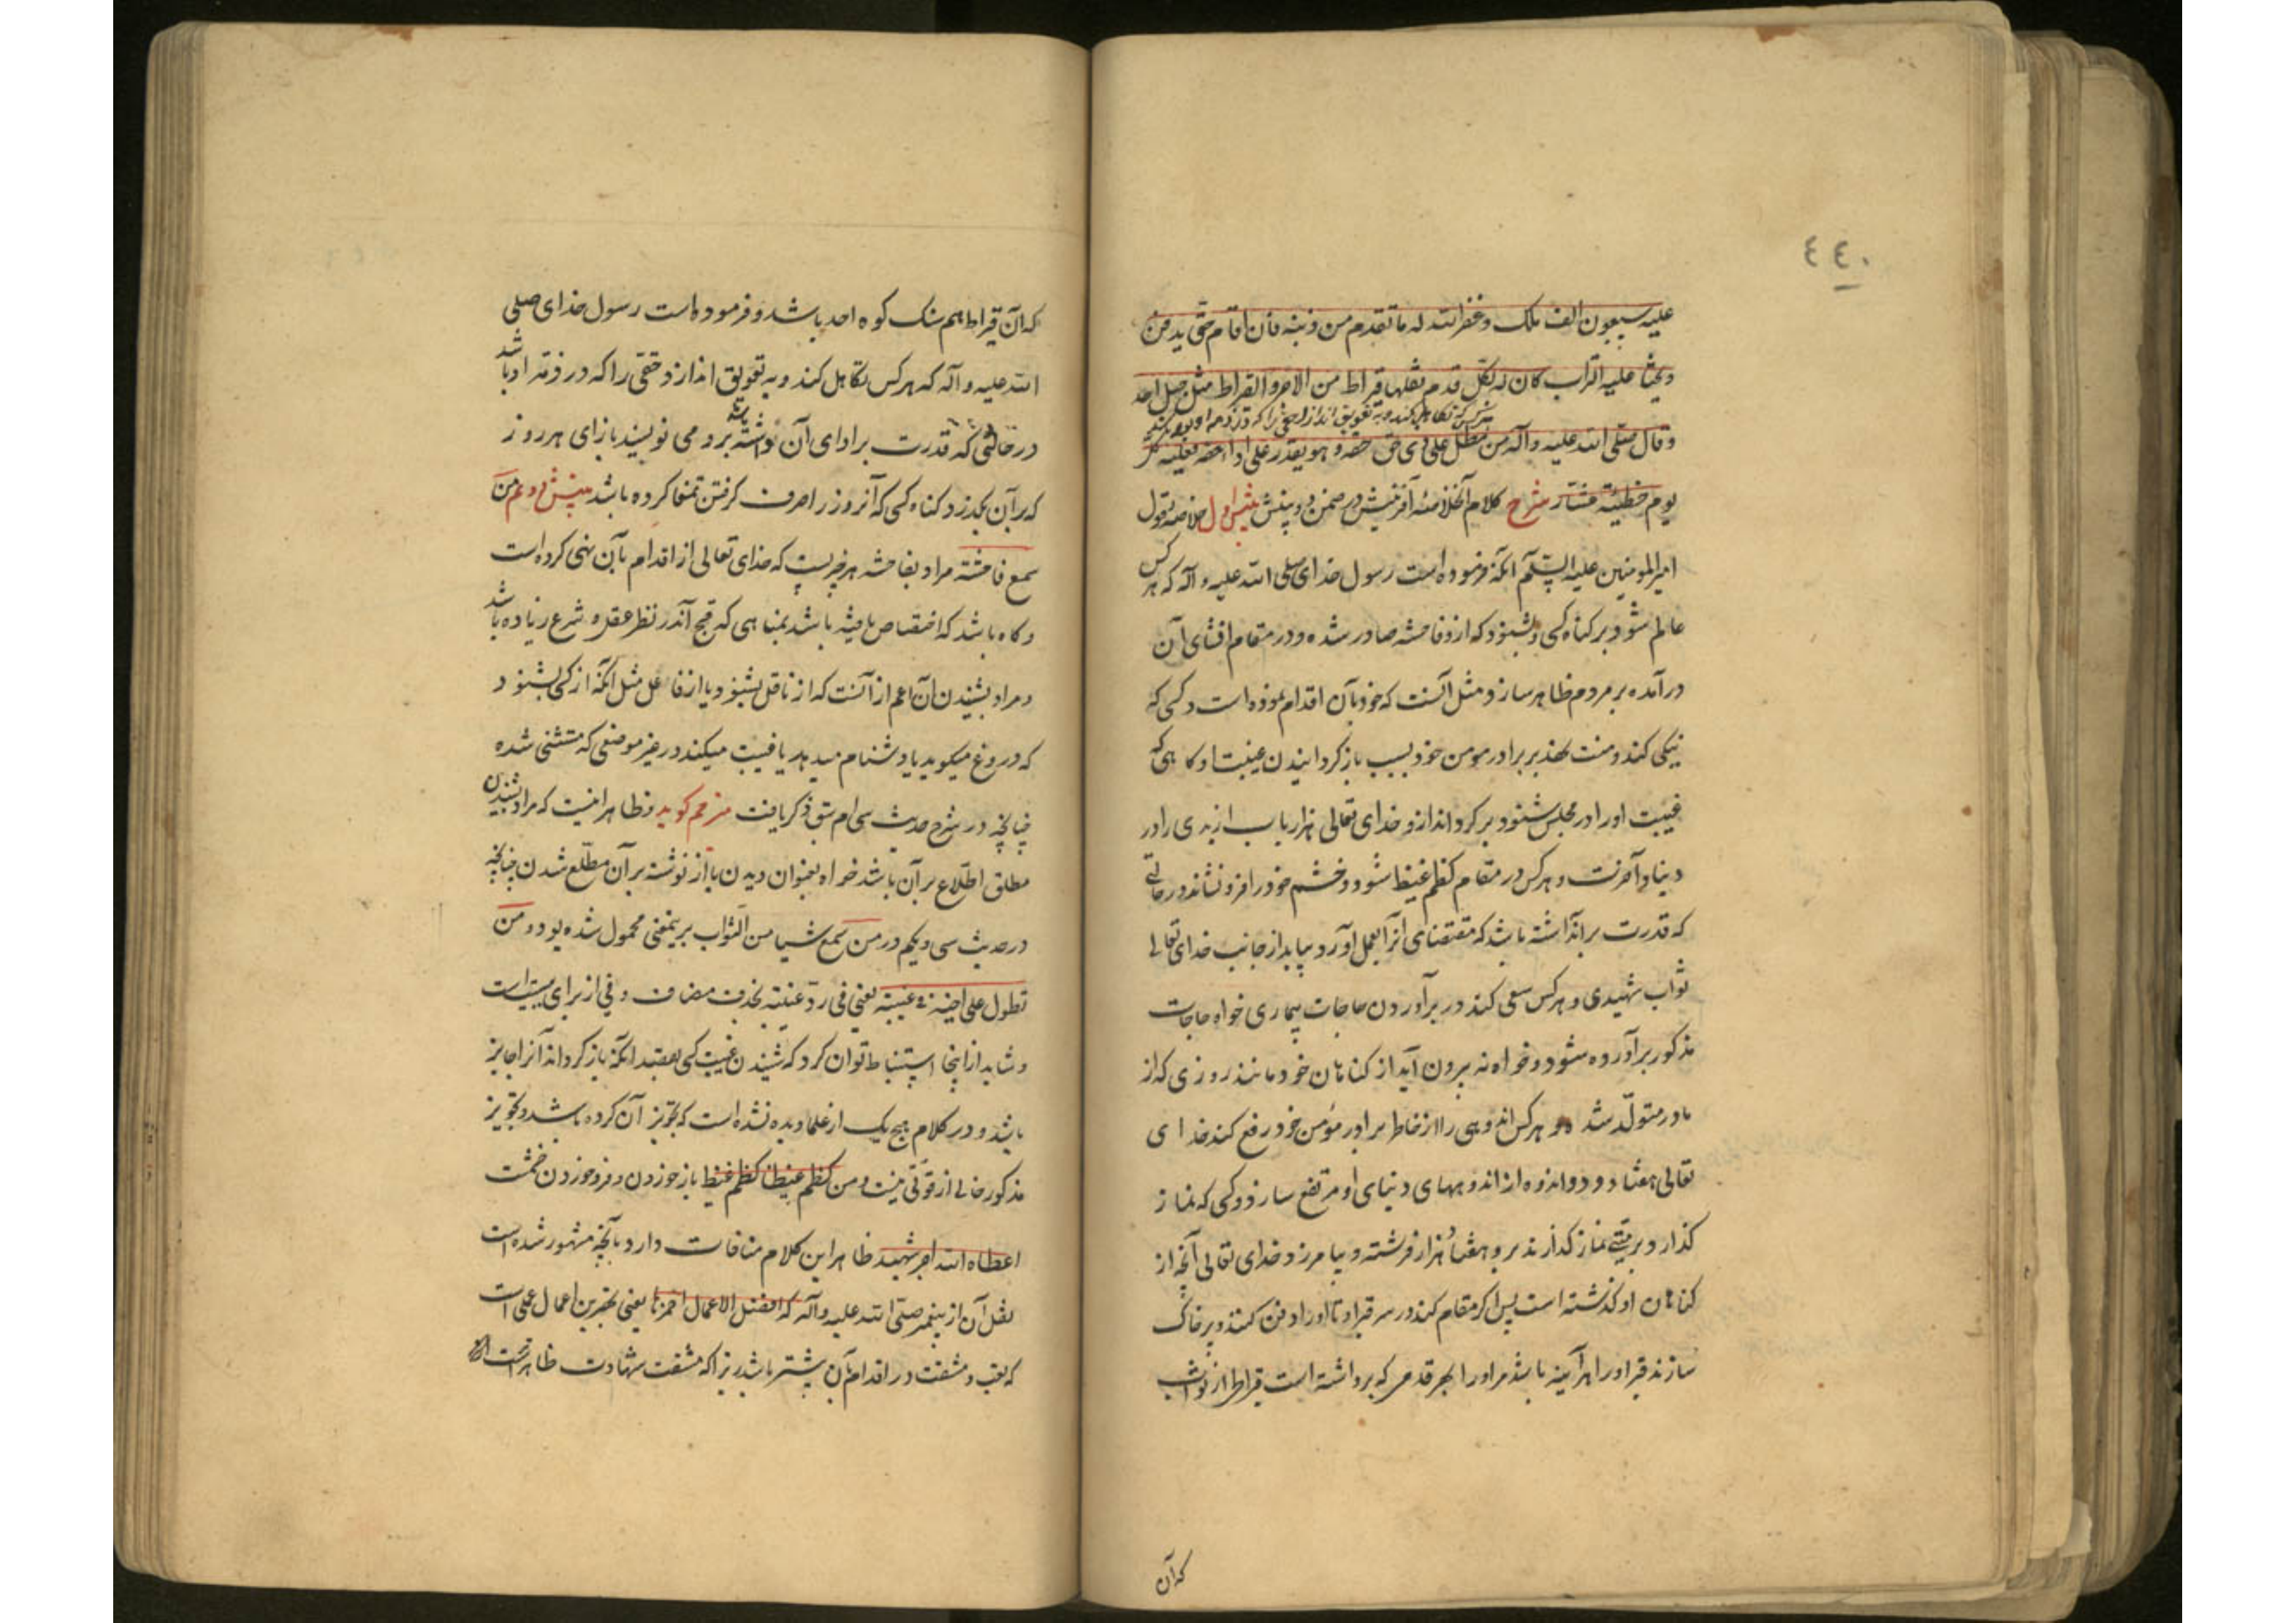 ٤٤٠
علیه سبعون الف ملک و غفر الله له ما تقدم من ذنبه فان اقام حتی یدفن
و یحثا علیه التراب کان له بکل قدم نقلها قیراط من الاجر و القیراط مثل جبل احد
هرکس که تکاهل کند و به تعویق اندازد حقی را که در ذمه او بود
و قال صلی الله علیه و آله من مطل علی ذی حق حقه و هو یقدر علی اداء حقه فعلیه کل
یوم خطیئة عشار شرح کلام آنخلاصهٔ آفرینش در ضمن دو بینش بینش اول خلاصه قول
امیرالمومنین علیه السلم آنکه فرموده است رسول خدای صلی الله علیه و آله که هر کس
عالم شود بر کناه کسی و بشنود که ازو فاحشه صادر شده و در مقام افشای آن
درآمده بر مردم ظاهر سازد مثل آنست که خود بآن اقدام نموده است و کسی که
نیکی کند و منت نهد بر برادر مومن خود بسبب باز کردانیدن غیبت او کاهی که
غیبت او را در مجلس شنود بر کرداند ازو خدای تعالی هزار باب از بدی را در
دنیا و آخرت و هر کس در مقام کظم غیظ شود و خشم خود را فرو نشاند در حالتی
که قدرت بر آن داشته باشد که مقتضای آنرا بعمل آورد بیابد از جانب خدای تعالی
ثواب شهیدی و هر کس سعی کند در برآوردن حاجات بیماری خواه حاجات
مذکور برآورده شود و خواه نه بیرون آید از کناهان خود مانند روزی که از
مادر متولد شد و هر کس اندوهی را از خاطر برادر مؤمن خود رفع کند خدای
تعالی هفتاد و دو اندوه از اندوههای دنیای او مرتفع سازد و کسی که نماز
کذارد بر میتی نماز کذارند برو هفتاد هزار فرشته و بیامرزد خدای تعالی آنچه از
کناهان او کذشته است پس اکر مقام کند در سر قبر او تا او را دفن کنند و پر خاک
سازند قبر او را هرآینه باشد مر او را بهر قدمی که برداشته است قیراطی از ثواب
که آن
که آن قیراط هم سنک کوه احد باشد و فرموده است رسول خدای صلی
الله علیه و آله که هر کس تکاهل کند و به تعویق اندازد حقی را که در ذمه او باشد
در حالتی که قدرت بر ادای آن داشته باشد برو می نویسند بازای هر روز
که بر آن بکذرد کناه کسی که آنروز را صرف کرفتن تمغا کرده باشد بینش دوم من
سمع فاحشة مراد بفاحشه هر چیزیست که خدای تعالی از اقدام بآن نهی کرده است
و کاه باشد که اختصاص یافته باشد بمناهی که قبح آن در نظر عقل و شرع زیاده باشد
و مراد بشنیدن آن اعم از آنست که از ناقل بشنود یا از فاعل مثل آنکه از کسی بشنود
که دروغ میکوید یا دشنام میدهد یا غیبت میکند در غیر موضعی که مستثنی شده
چنانچه در شرح حدیث سی ام سبق ذکر یافت مترجم کوید و ظاهر اینست که مراد بشنیدن
مطلق اطلاع بر آن باشد خواه بعنوان دیدن یا از نوشته بر آن مطلع شدن چنانچه
در حدیث سی و یکم در من سمع شیئا من الثواب برینمعنی محمول شده بود و من
تطول علی اخیه فی غیبته یعنی فی رد غیبته بحذف مضاف و فی از برای سببیت است
و شاید از اینجا استنباط توان کرد که شنیدن غیبت کسی بقصد آنکه باز کرداند آنرا جایز
باشد و در کلام هیچ یک از علما دیده نشده است که تجویز آن کرده باشد و تجویز
مذکور خالی از قوتی نیست و من کظم غیظا کظم غیظ باز خوردن و فرو خوردن خشمست
اعطاه الله اجر شهید ظاهر این کلام منافات دارد بآنچه مشهور شده است
نقل آن از پیغمبر صلی الله علیه و آله که افضل الاعمال احمزها یعنی بهترین اعمال عملی است
که تعب و مشقت در اقدام بآن بیشتر باشد زیرا که مشقت شهادت ظاهرست